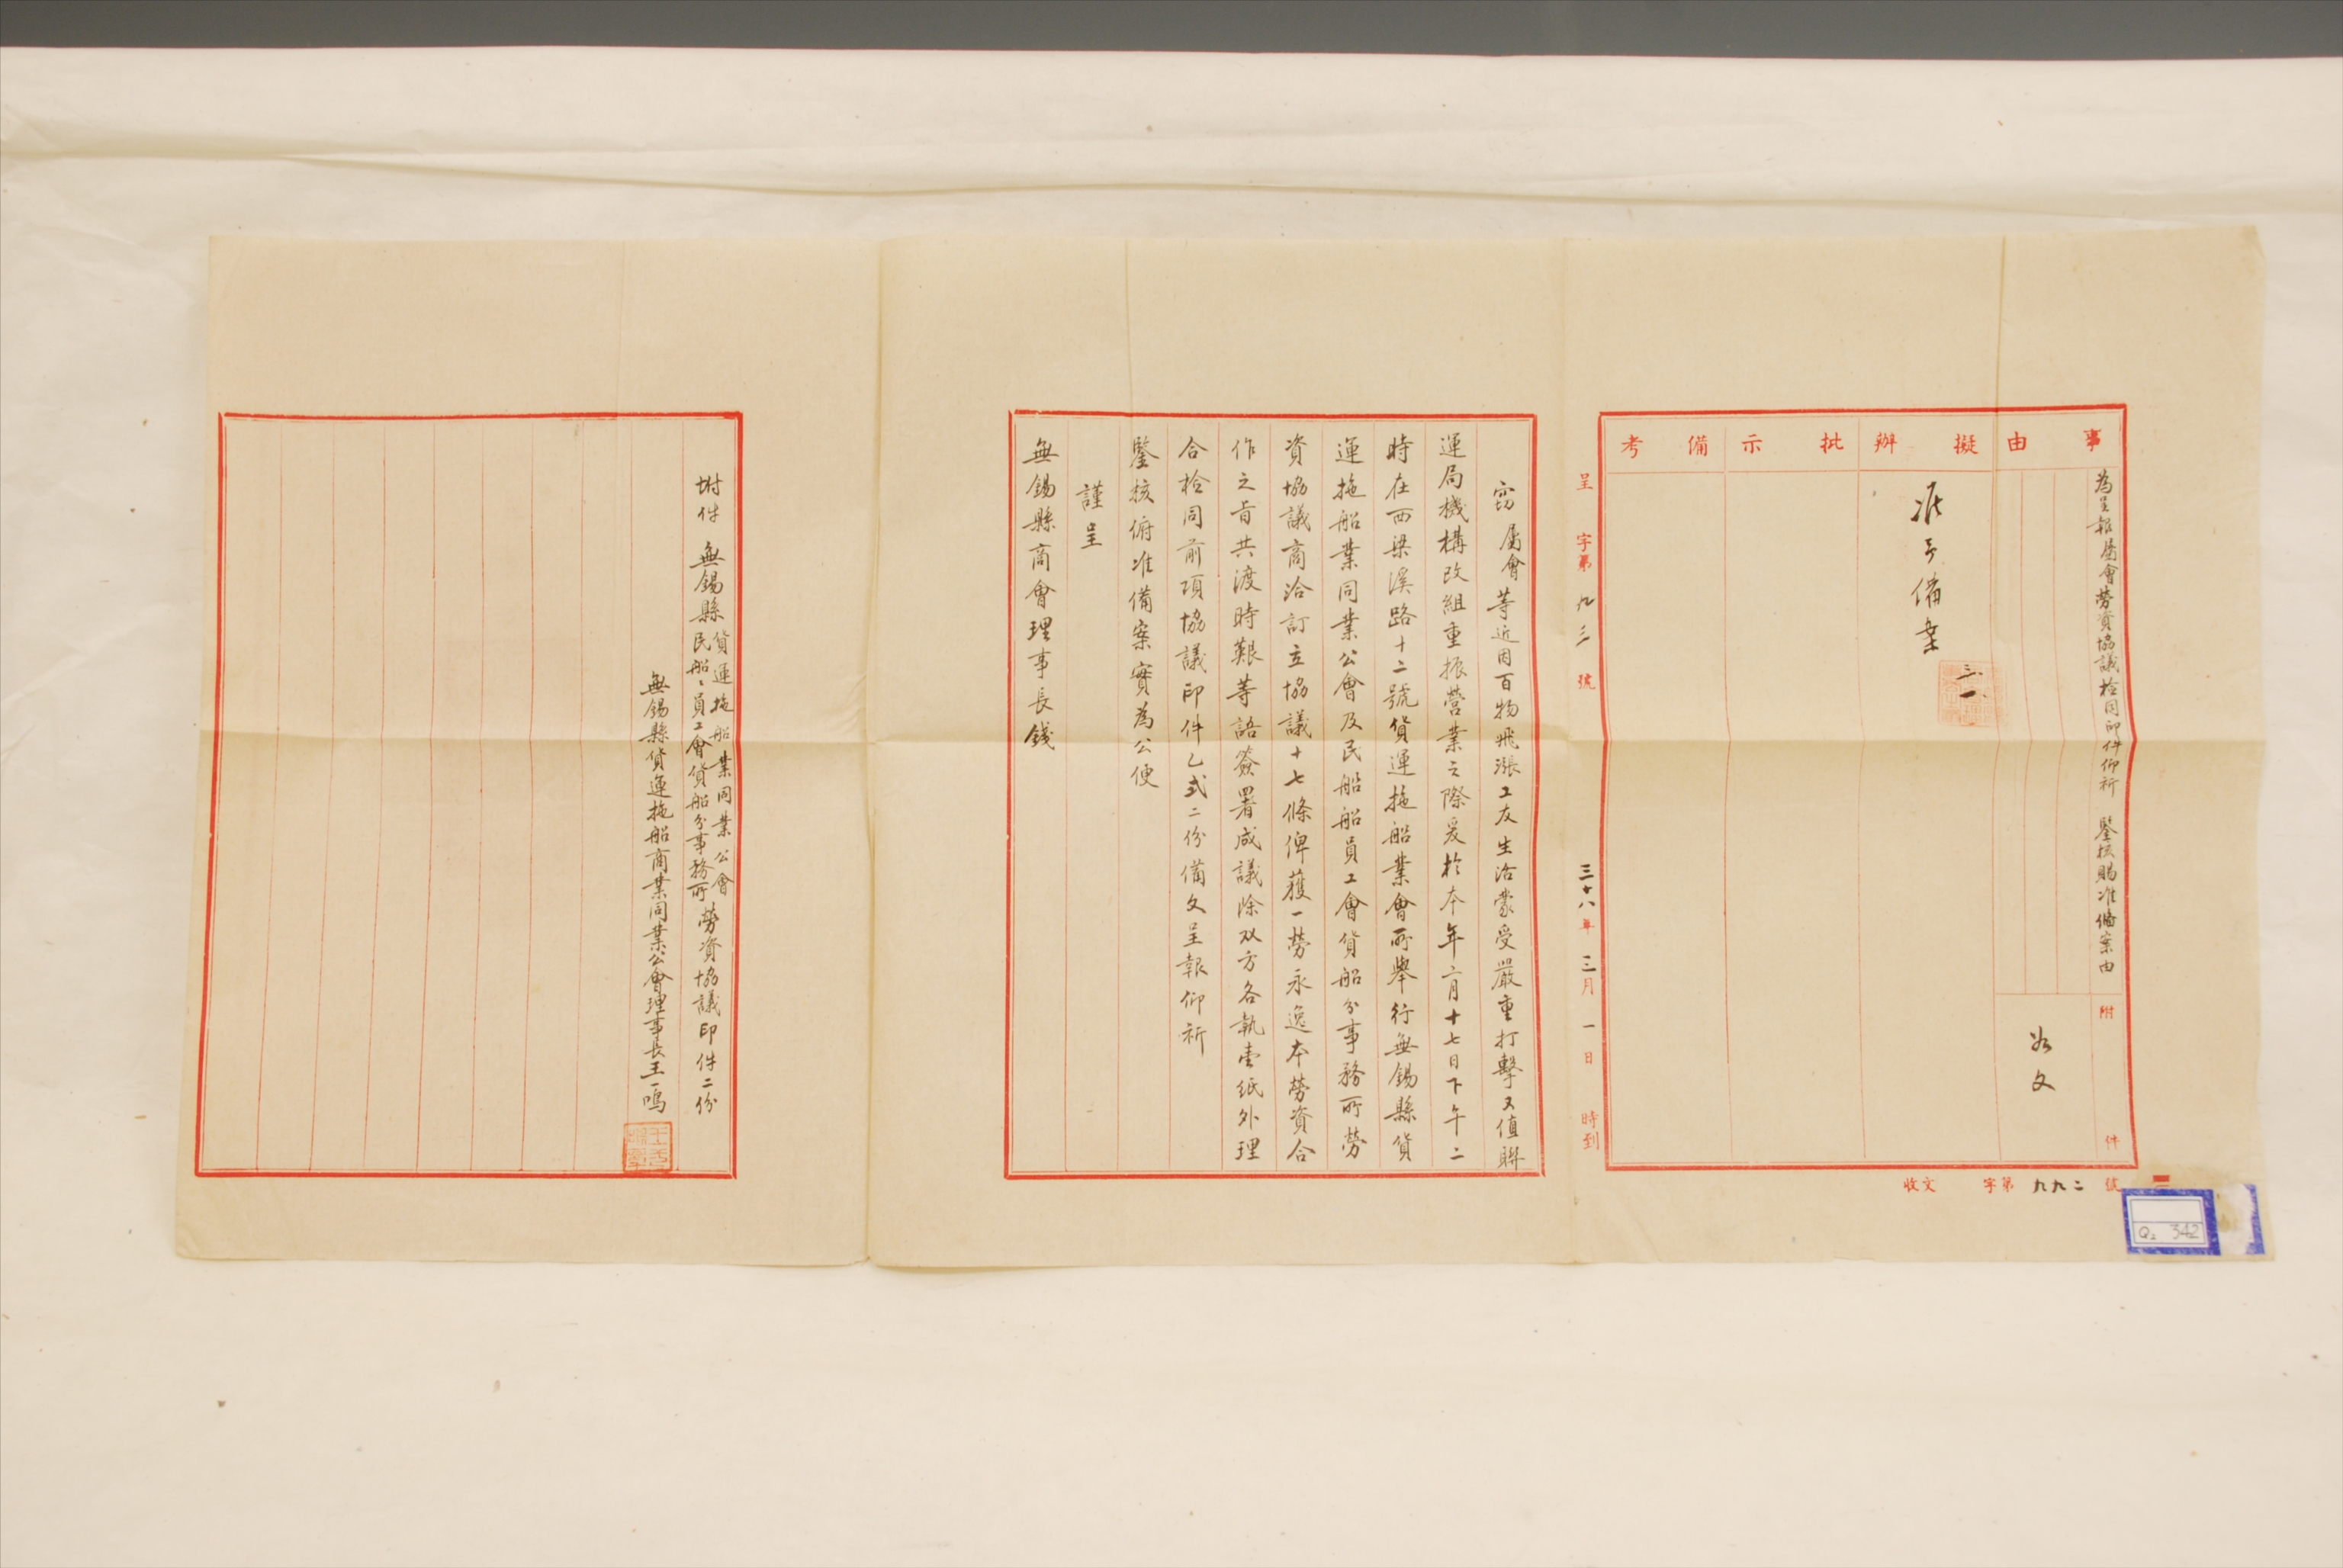 事由
為呈報屬會勞資協議檢同印件仰祈　鑒核賜准備案由
附件
如文
擬辦
准予備案
三
一
批示
備考
收文　字第九九二號
呈　字第九三號
三十八年三月一日　時到
竊屬會等近因百物飛漲工友生活蒙受嚴重打擊又值聯
運局機構改組重振營業之際爰於本年二月十七日下午二
時在西梁溪路十二號貨運拖船業會所舉行無錫縣貨
運拖船業同業公會及民船船員工會貨船分事務所勞
資協議商洽訂立協議十七條俾獲一勞永逸本勞資合
作之旨共渡時艱等語簽署成議除双方各執壹紙外理
合檢同前項協議印件乙式二份備文呈報仰祈
鑒核俯准備案實為公便
謹呈
無錫縣商會理事長錢
坿件　無錫縣貨運拖船業同業公會
民船〻員工會貨船分事務所
勞資協議印件二份
無錫縣貨運拖船商業同業公會理事長王一鳴
Q2 342